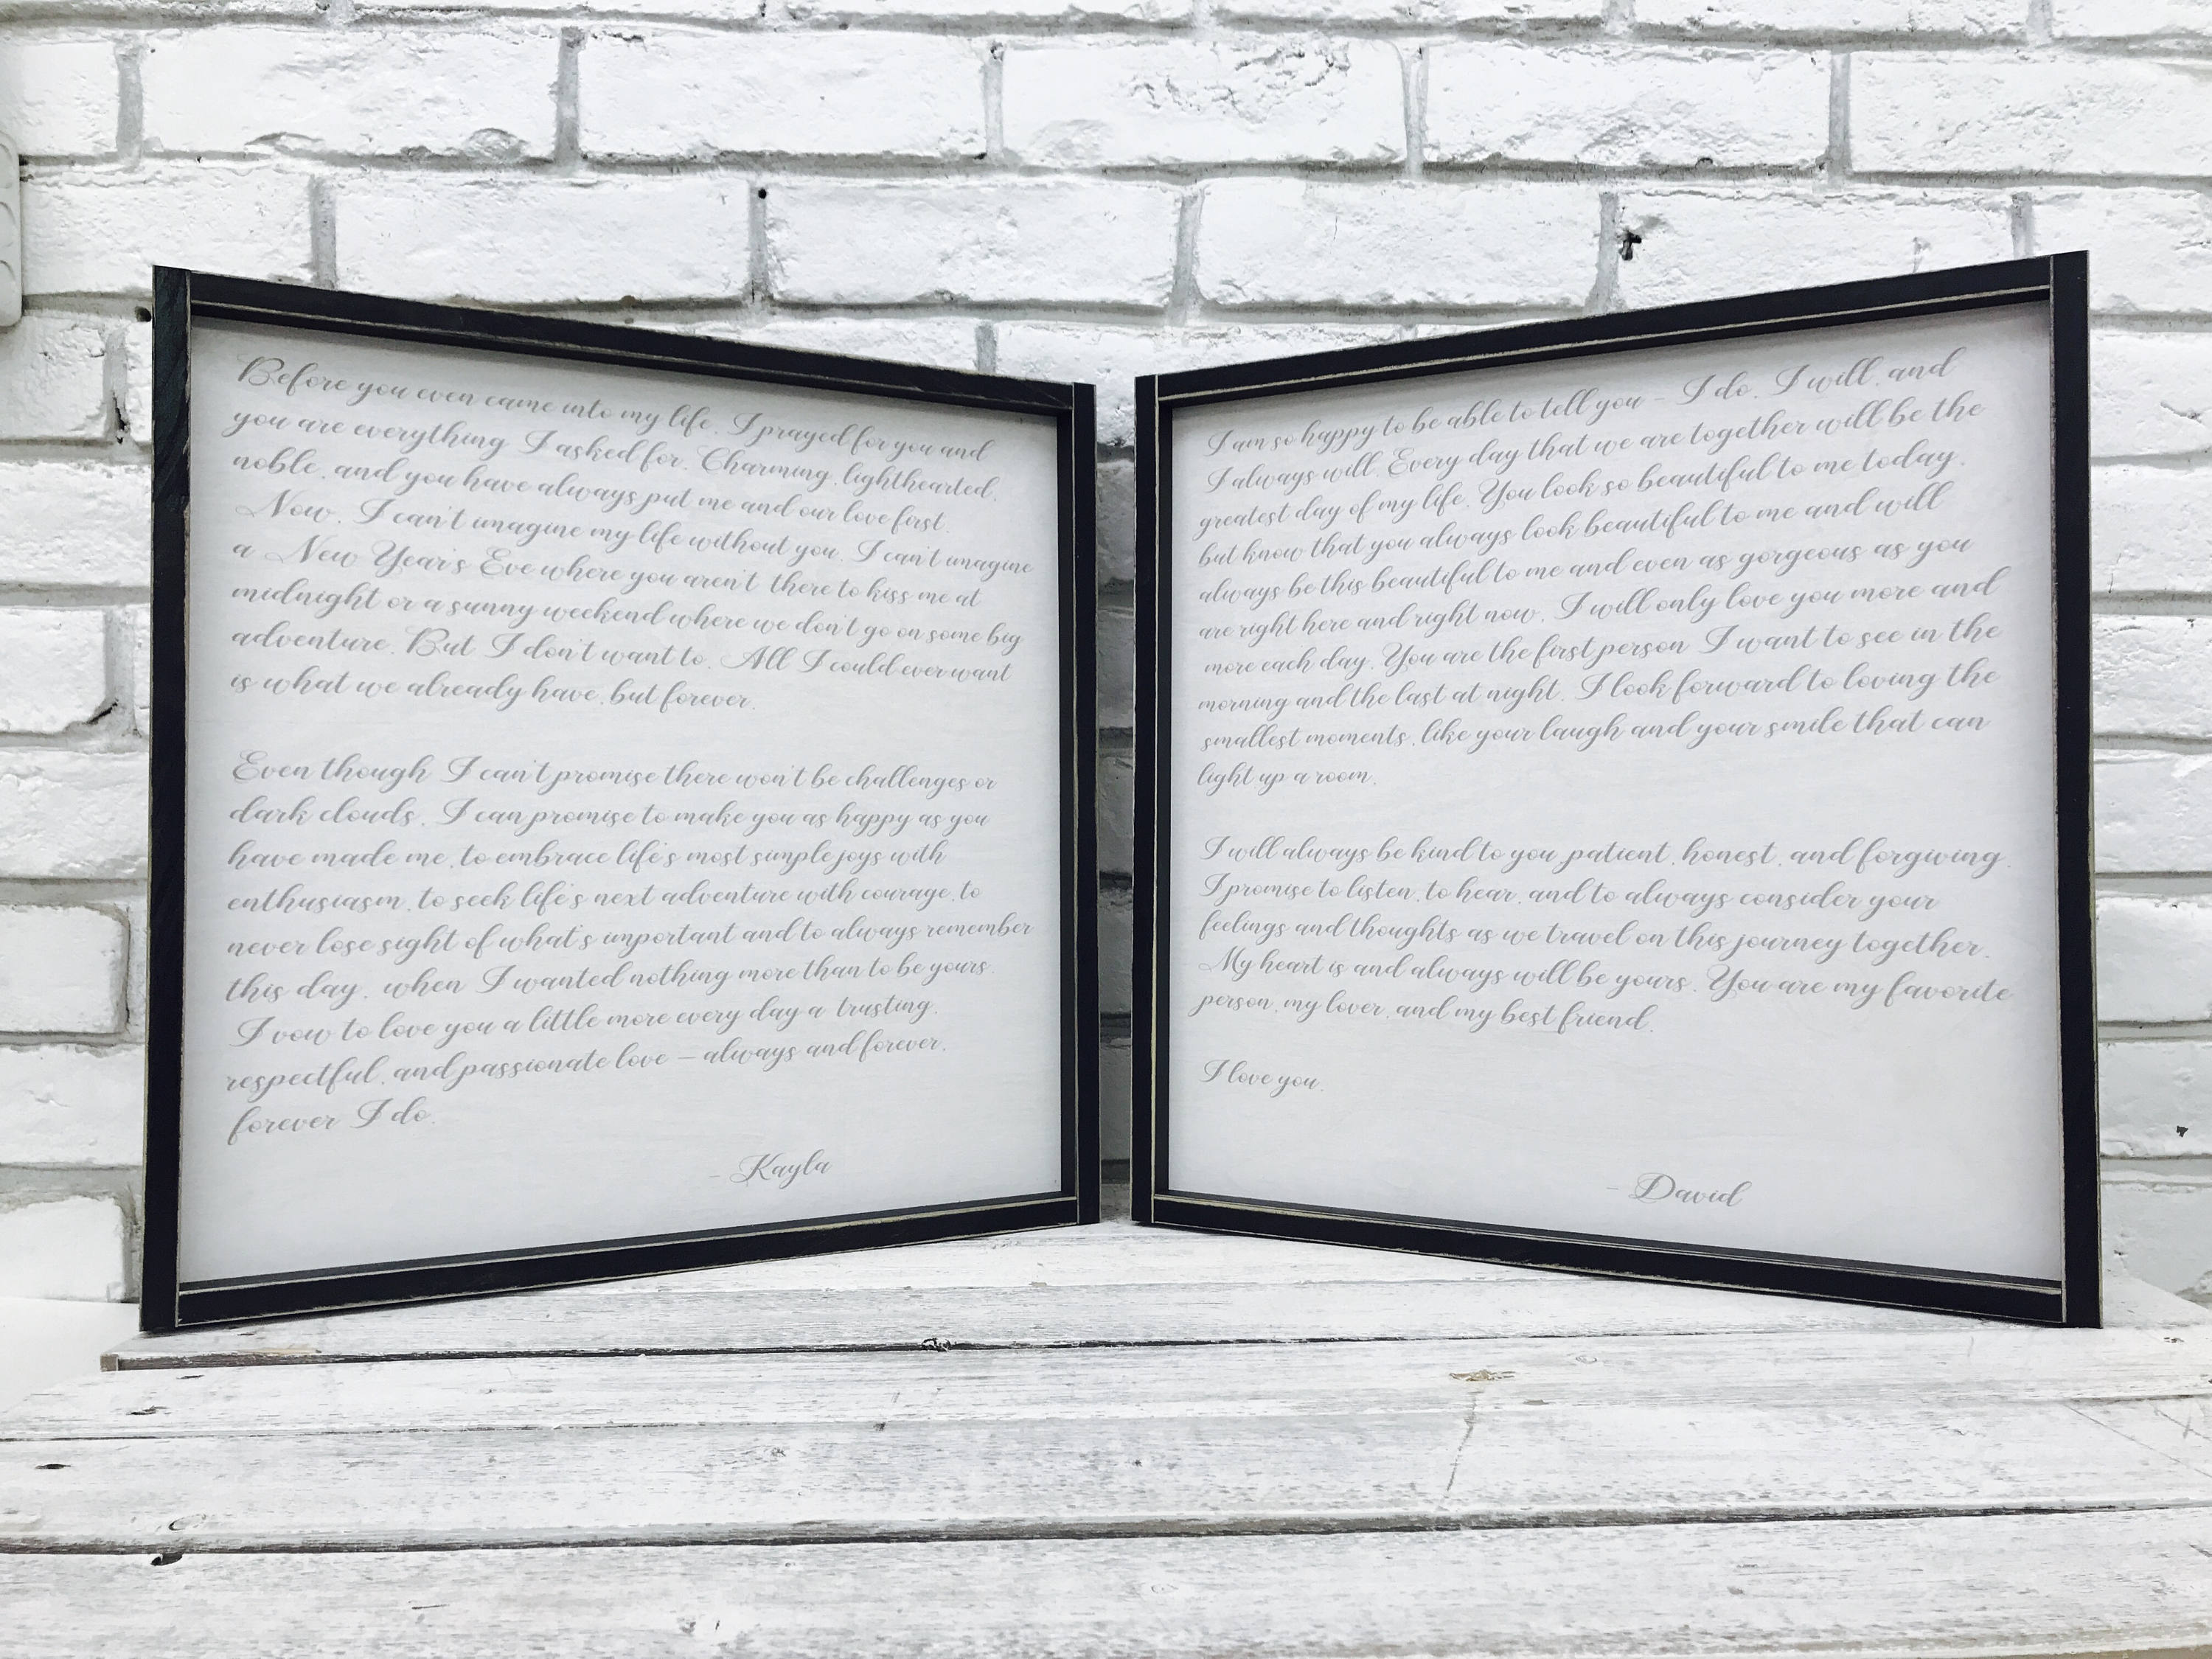 Before you even came into my life, I prayed for you and
you are everything I asked for. Charming, lighthearted,
noble, and you have always put me and our love first.
Now, I can't imagine my life without you. I can't imagine
a New Year's Eve where you aren't there to kiss me at
midnight or a sunny weekend where we don't go on some big
adventure. But I don't want to. All I could ever want
is what we already have, but forever.
Even though I can't promise there won't be challenges or
dark clouds, I can promise to make you as happy as you
have made me, to embrace life's most simple joys with
enthusiasm, to seek life's next adventure with courage, to
never lose sight of what's important and to always remember
this day, when I wanted nothing more than to be yours.
I vow to love you a little more every day a trusting,
respectful, and passionate love – always and forever,
forever I do.
- Kayla
I am so happy to be able to tell you – I do, I will, and
I always will. Every day that we are together will be the
greatest day of my life. You look so beautiful to me today,
but know that you always look beautiful to me and will
always be this beautiful to me and even as gorgeous as you
are right here and right now. I will only love you more and
more each day. You are the first person I want to see in the
morning and the last at night. I look forward to loving the
smallest moments, like your laugh and your smile that can
light up a room.
I will always be kind to you, patient, honest, and forgiving.
I promise to listen, to hear, and to always consider your
feelings and thoughts as we travel on this journey together.
My heart is and always will be yours. You are my favorite
person, my lover, and my best friend.
I love you.
- David